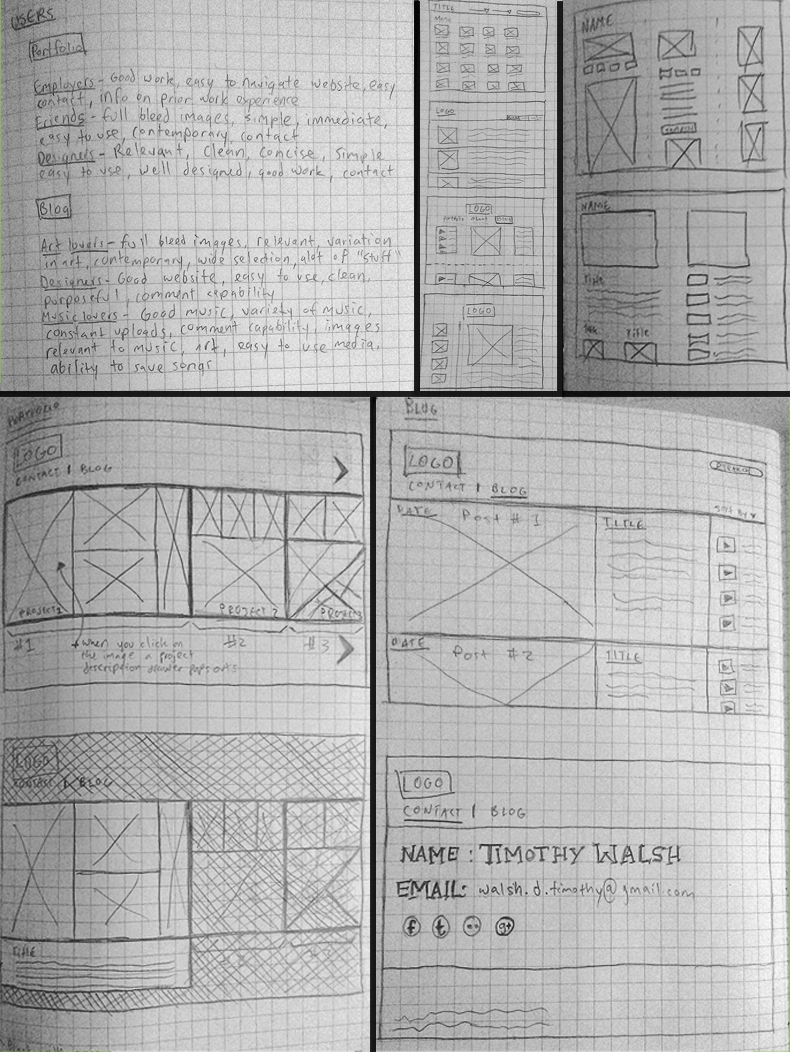 USERS
Portfolio
Employers - Good work, easy to navigate website, easy
contact, info on prior work experience
Friends - full bleed images, simple, immediate,
easy to use, contemporary, contact
Designers - Relevant, clean, concise, simple
easy to use, well designed, good work, contact
Blog
Art lovers - full bleed images, relevant, variation
in art, contemporary, wide selection, alot of "stuff"
Designers - Good website, easy to use, clean,
purposeful, comment capability
Music lovers - Good music, variety of music,
constant uploads, comment capability, images
relevant to music, art, easy to use media,
ability to save songs
TITLE
Menu
LOGO
LOGO
Portfolio About Blog
LOGO
NAME
NAME
Title
Title
PORTFOLIO
LOGO
CONTACT | BLOG
PROJECT 1
PROJECT 2
PROJECT
#1
#2
#3
* When you click on
the image a project
description drawer pops out
LOGO
CONTACT | BLOG
TITLE
BLOG
LOGO
SEARCH
CONTACT | BLOG
SORT BY
DATE
Post #1
TITLE
DATE
Post #2
TITLE
LOGO
CONTACT | BLOG
NAME : TIMOTHY WALSH
EMAIL: walsh.d.timothy@gmail.com
f t g+